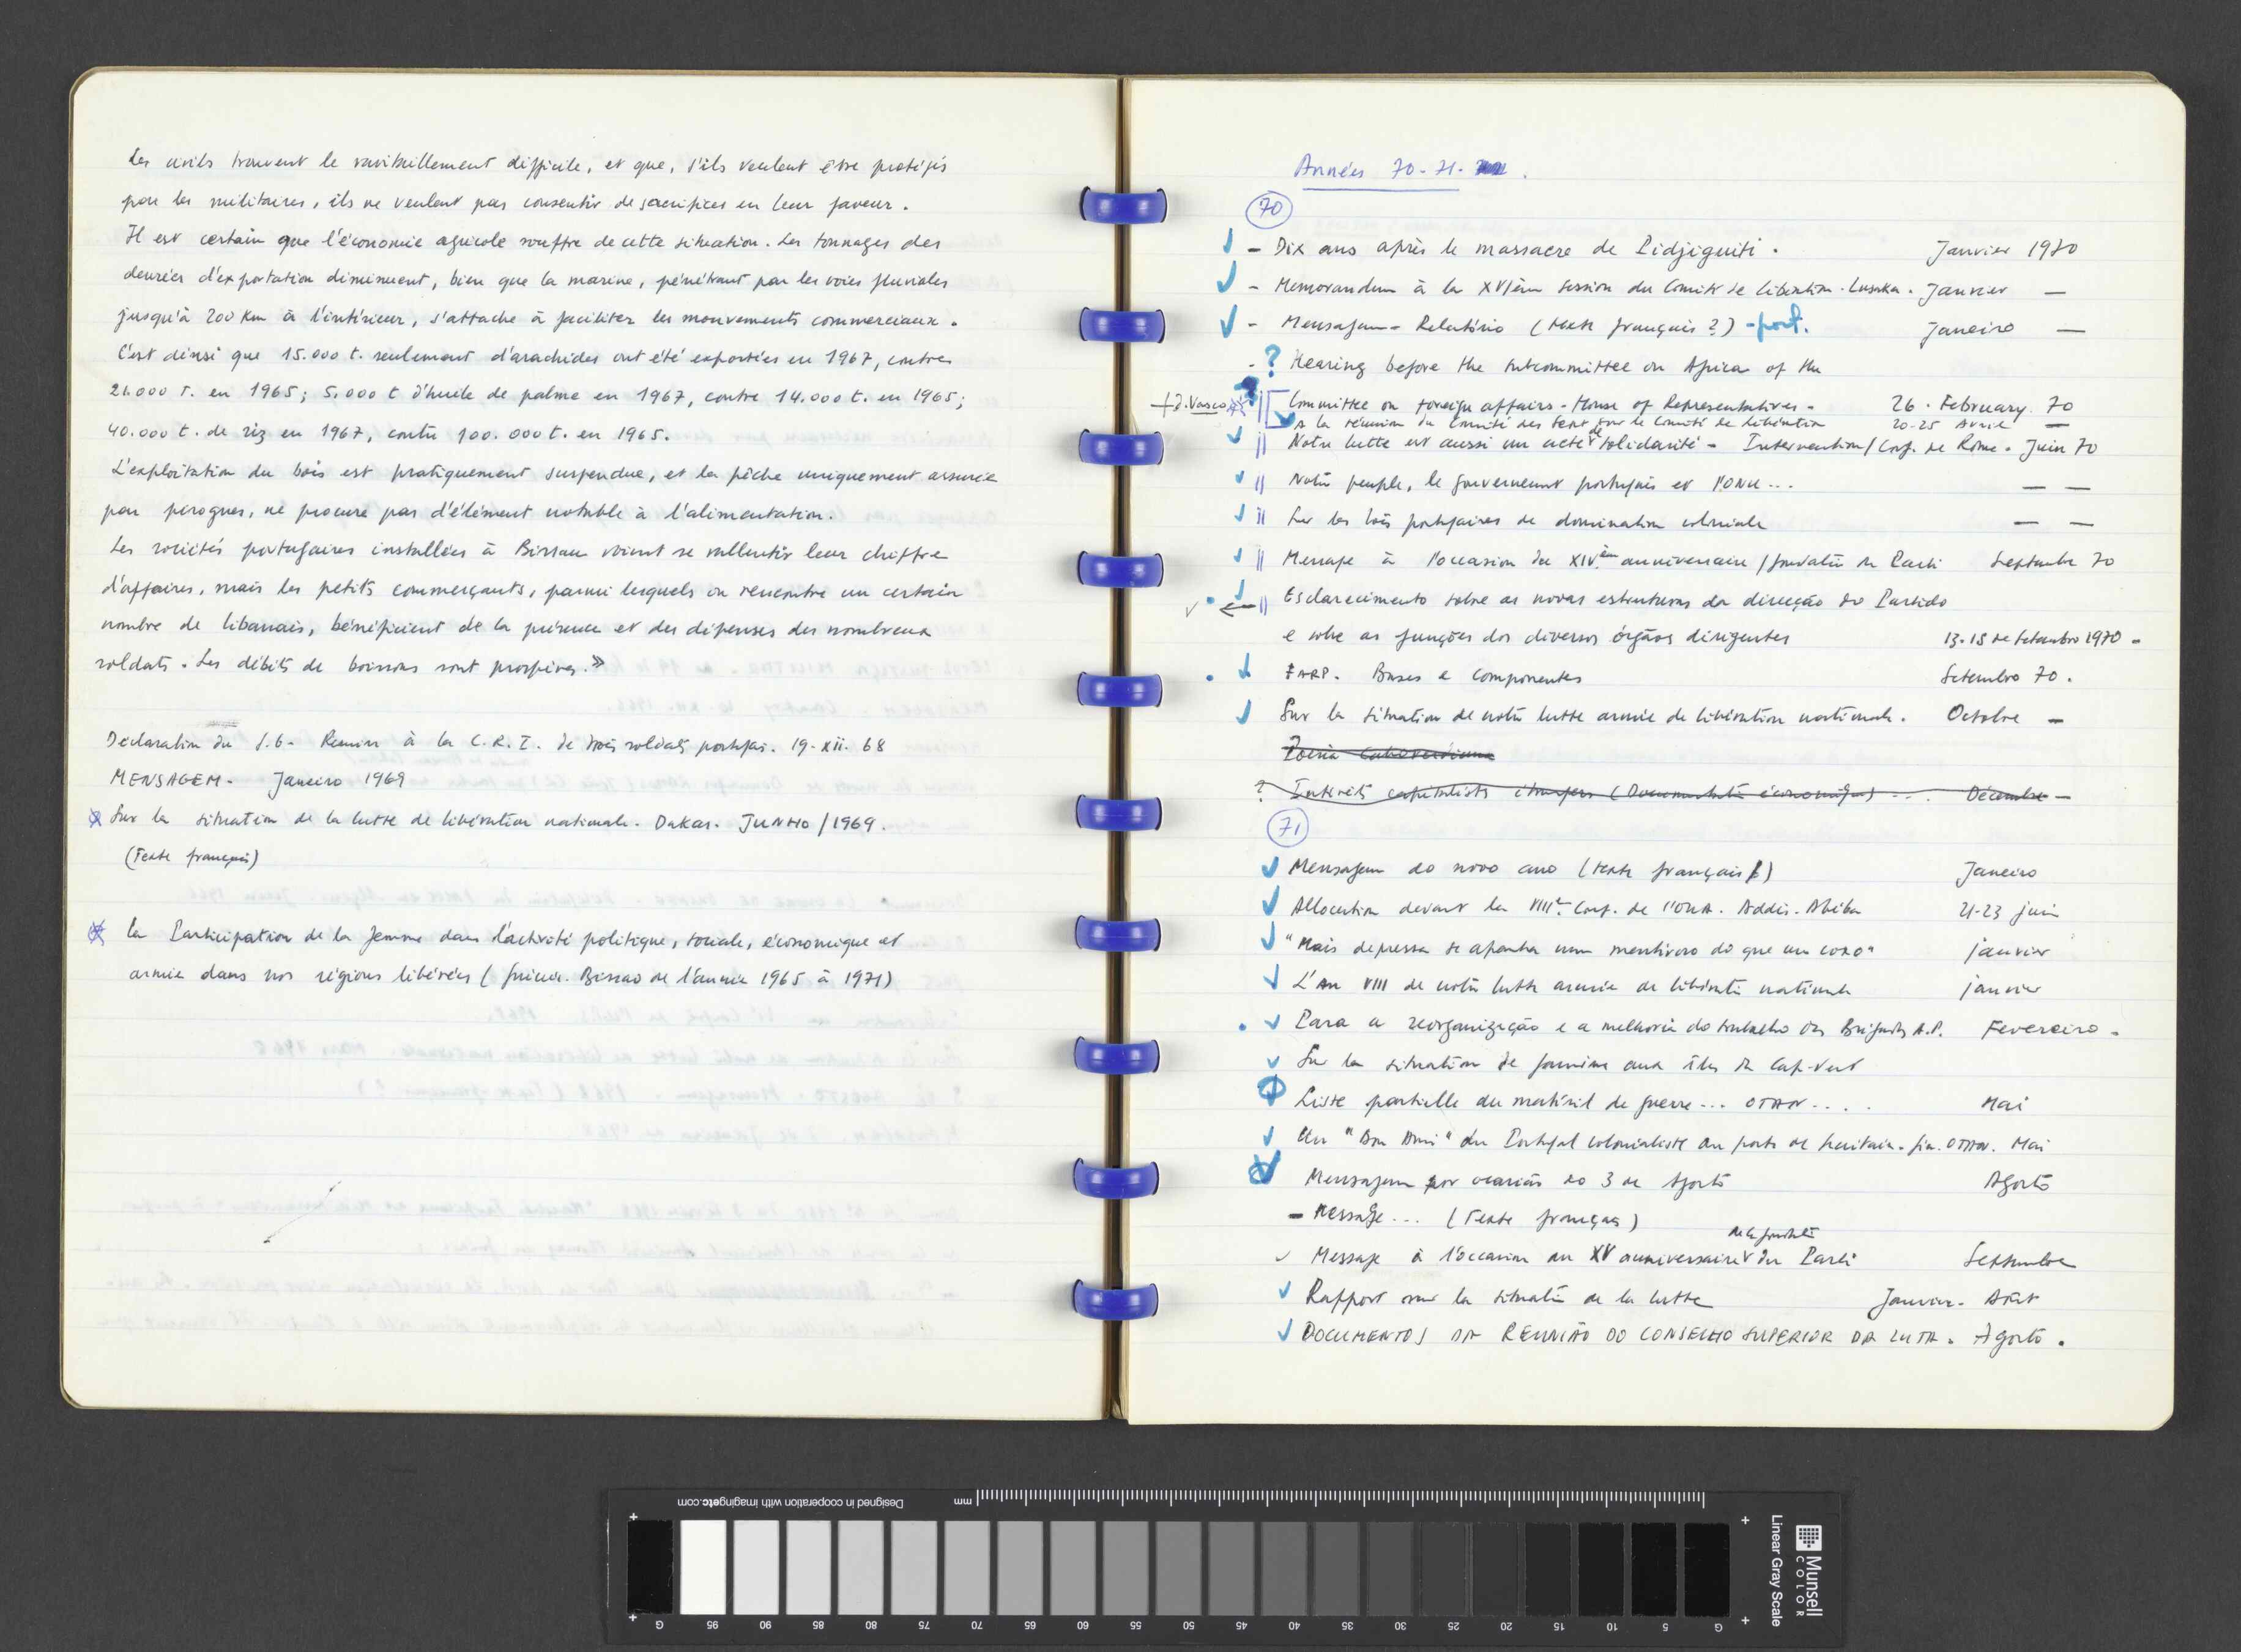 Les civils trouvent le ravitaillement difficile, et que, s'ils veulent être protégés
par les militaires, ils ne veulent pas consentir de sacrifices en leur faveur.
Il est certain que l'économie agricole souffre de cette situation. Les tonnages des
denrées d'exportation diminuent, bien que la marine, pénétrant par les voies fluviales
jusqu'à 200 km à l'intérieur, s'attache à faciliter les mouvements commerciaux.
C'est ainsi que 15.000 t. seulement d'arachides ont été exportées en 1967, contre
21.000 T. en 1965; 5.000 t d'huile de palme en 1967, contre 14.000 t. en 1965;
40.000 t. de riz en 1967, contre 100.000 t. en 1965.
L'exploitation du bois est pratiquement suspendue, et la pêche uniquement assurée
par pirogues, ne procure pas d'élément notable à l'alimentation.
Les sociétés portugaises installées à Bissau voient se rallentir leur chiffre
d'affaires, mais les petits commerçants, parmi lesquels on rencontre un certain
nombre de libanais, bénéficient de la présence et des dépenses des nombreux
soldats. Les débits de boissons sont prospères.»
Déclaration du S.G. Remise à la C.R.I. de trois soldats portugais. 19.XII.68
MENSAGEM - Janeiro 1969
Sur la situation de la lutte de libération nationale. Dakar. JUNHO/1969.
(Texte français)
La Participation de la femme dans l'activité politique, sociale, économique et
armée dans nos régions libérées (Guinée. Bissao de l'année 1965 à 1971)
Années 70-71-
70
- Dix ans après le massacre de Pidjiguiti. Janvier 1970
- Memorandum à la XVIème session du Comité de Libération. Lusaka. Janvier —
- Mensagem - Relatório (texte français?) - port. Janeiro —
- ? Hearing before the subcommittee on Africa of the
+ J. Vasco Committee on foreign affairs - House of Representatives - 26. February. 70
A la réunion du Comité des Sept sur le Comité de Libération 20-25 Avril —
Notre lutte est aussi un acte de solidarité - Intervention/Conf. de Rome. Juin 70
Notre peuple, le gouvernement portugais et l'ONU... — —
Sur les lois portugaises de domination coloniale — —
Message à l'occasion du XIVème anniversaire/fondation du Parti Septembre 70
Esclarecimento sobre as novas estruturas da direcção do Partido
e sobre as funções dos diversos órgãos dirigentes 13-15 de Setembro 1970 -
FARP. Bases e componentes Setembro 70.
Sur la situation de notre lutte armée de libération nationale. Octobre —
Poesia Caboverdiana
? Intérêts capitalists étrangers (Documentation économique) ... Décembre —
71
Mensagem do novo ano (texte français) Janeiro
Allocution devant la VIIIe Conf. de l'OUA. Addis-Abéba 21-23 juin
"Mais depressa se apanha um mentiroso do que um coxo" janvier
L'An VIII de notre lutte armée de libération nationale janvier
Para a reorganização e a melhoria do trabalho das Brigadas A.P. Fevereiro.
Sur la situation de famine aux îles du Cap-Vert
Liste partielle du matériel de guerre... OTAN.... Mai
Un "Bon Ami" du Portugal colonialiste au poste de Secrétaire. gén. OTAN. Mai
Mensagem por ocasião do 3 de Agosto Agosto
- Message... (Texte français)
de la fondation
Message à l'occasion du XV anniversaire du Parti Septembre
Rapport sur la situation de la lutte Janvier - Août
DOCUMENTOS DA REUNIÃO DO CONSELHO SUPERIOR DA LUTA. Agosto.
Designed in cooperation with imagingetc.com
mm
Munsell
COLOR
Linear Gray Scale
G 95 90 85 80 75 70 65 60 55 50 45 40 35 30 25 20 15 10 5 G